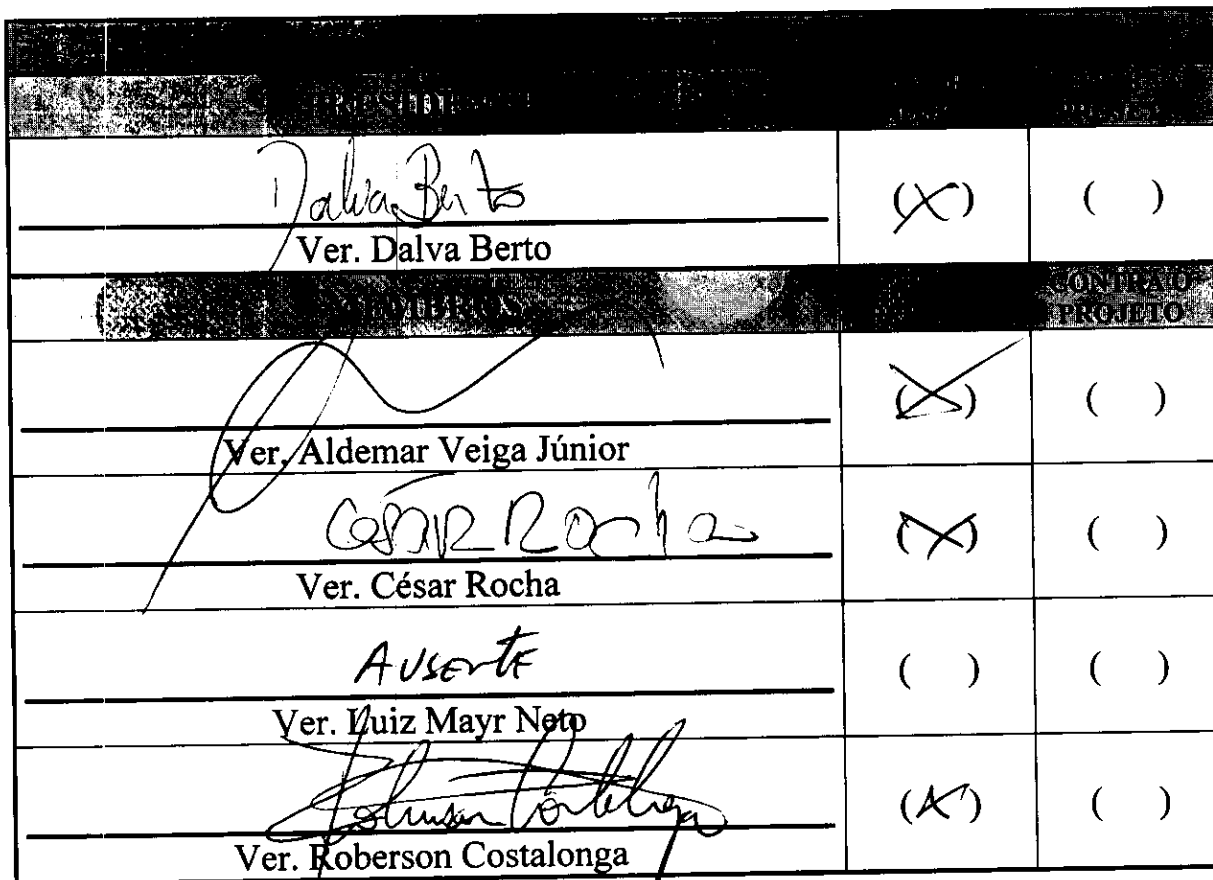 PRESIDENTE
Dalva Berto (X) ( )
Ver. Dalva Berto
MEMBROS CONTRA O PROJETO
(X) ( )
Ver. Aldemar Veiga Júnior
César Rocha (X) ( )
Ver. César Rocha
AUSENTE ( ) ( )
Ver. Luiz Mayr Neto
(X) ( )
Ver. Roberson Costalonga